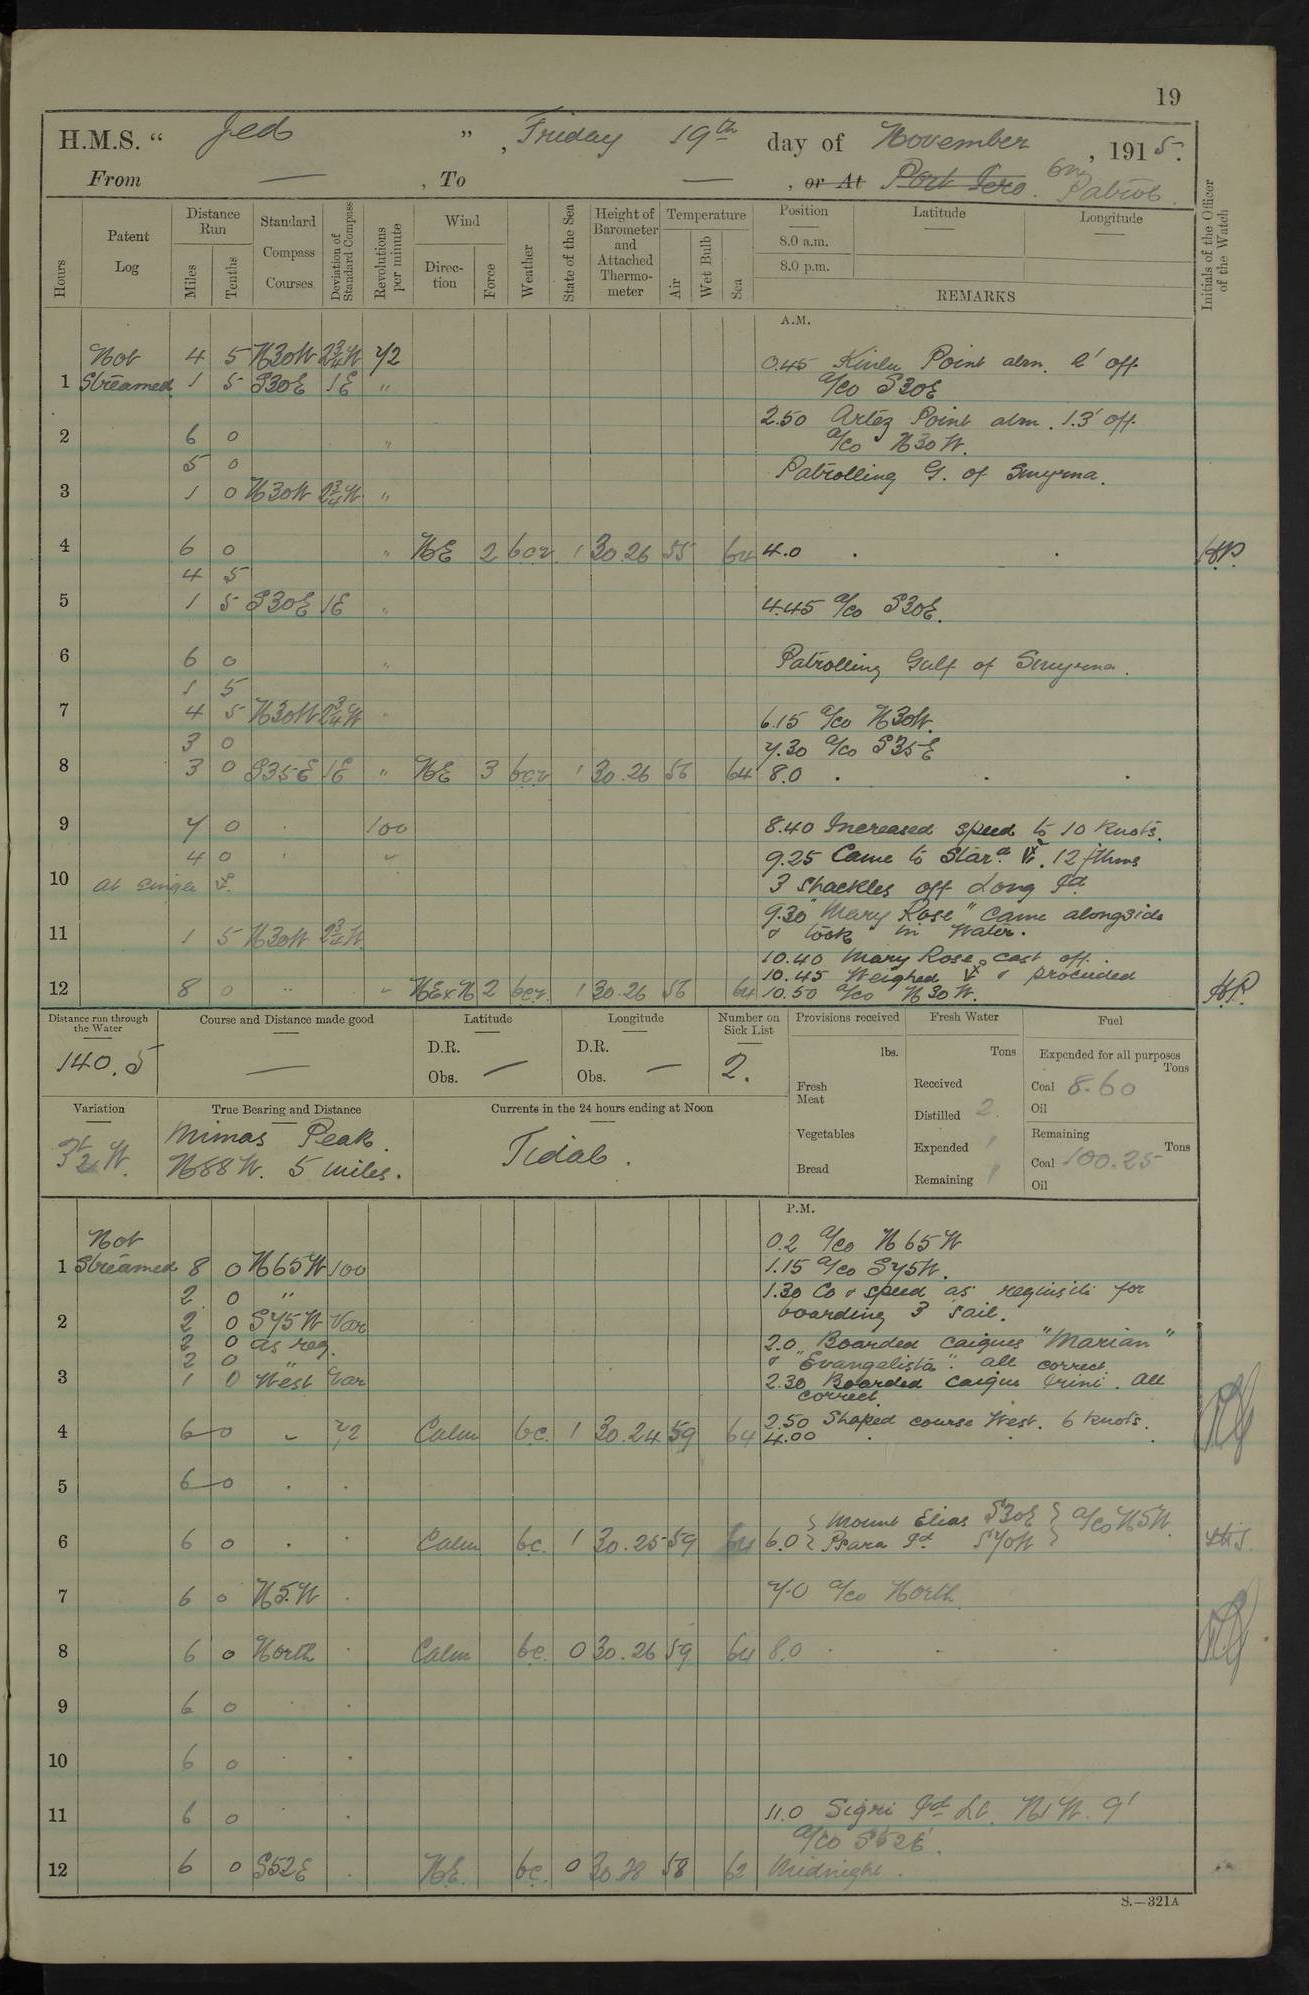 19
H.M.S. “ Jed ” , Friday 19th day of November , 1915.
From — , To — , or At Port Iero. On Patrol.
Hours
Patent Log
Distance Run
Miles
Tenths
Standard Compass Courses
Deviation of Standard Compass
Revolutions per minute
Wind
Direction
Force
Weather
State of the Sea
Height of Barometer and Attached Thermometer
Temperature
Air
Wet Bulb
Sea
Position Latitude Longitude
8.0 a.m.
8.0 p.m.
REMARKS
Initials of the Officer of the Watch
A.M.
Not 4 5 N30W 2¾W 72 0.45 Point abm. 2' off
1 Streamed 1 5 S30E 1E " a/co S30E
2.50 Artez Point abm. 1.3' off
2 6 0 " a/co N30W.
5 0 Patrolling G. of Smyrna.
3 1 0 N30W 2¾W "
4 6 0 " NE 2 bcv 1 30.26 55 64 4.0 . .
4 5
5 1 5 S30E 1E " 4.45 a/co S30E.
6 6 0 " Patrolling Gulf of Smyrna.
1 5
7 4 5 N30W 2¾W " 6.15 a/co N30W.
3 0 7.30 a/co S35E
8 3 0 S35E 1E " NE 3 bcv 1 30.26 56 64 8.0 . . .
9 7 0 . 100 8.40 Increased speed to 10 knots.
4 0 . " 9.25 Came to Stard. 12 fthms
10 at single 3 Shackles off Long Id
9.30 "Mary Rose" came alongside
11 1 5 N30W 2¾W & took in Water.
10.40 Mary Rose cast off.
10.45 Weighed & proceeded
12 8 0 " " NExN 2 bcv. 1 30.26 56 64 10.50 a/co N30W.
Distance run through the Water
140.5
Course and Distance made good
—
Latitude
D.R.
Obs. —
Longitude
D.R.
Obs. —
Number on Sick List
2.
Provisions received
lbs.
Fresh Meat
Vegetables
Bread
Fresh Water
Tons
Received
Distilled 2.
Expended 1
Remaining
Fuel
Expended for all purposes
Tons
Coal 8.60
Oil
Remaining
Tons
Coal 100.25
Oil
Variation
3½ W.
True Bearing and Distance
Mimas Peak.
N88W. 5 miles.
Currents in the 24 hours ending at Noon
Tidal.
P.M.
Not 0.2 a/co N65W
1 Streamed 8 0 N65W 100 1.15 a/co S75W.
2 0 " 1.30 Co & speed as requisite for
2 2 0 S75W Var boarding 3 sail.
2 0 as req. 2.0 Boarded caiques "Marian"
2 0 & "Evangelista". all correct.
3 1 0 West Var 2.30 Boarded caique Irini. All
correct.
2.50 Shaped course West. 6 knots.
4 6 0 " 72 Calm bc. 1 30.24 59 64 4.00 . . .
5 6 0 . .
Mount Elias S30E } a/co N5W.
6 6 0 . . Calm bc. 1 30.25 59 64 6.0 Psara Id S70W
7 6 0 N5.W . 7.0 a/co North.
8 6 0 North . Calm bc. 0 30.26 59 64 8.0 . . .
9 6 0 . .
10 6 0 . .
11 6 0 . . 11.0 Sigri Id Lt. N1W. 9'
a/co S52E.
12 6 0 S52E . NE. bc. 0 30.28 58 62 Midnight.
S.—321A